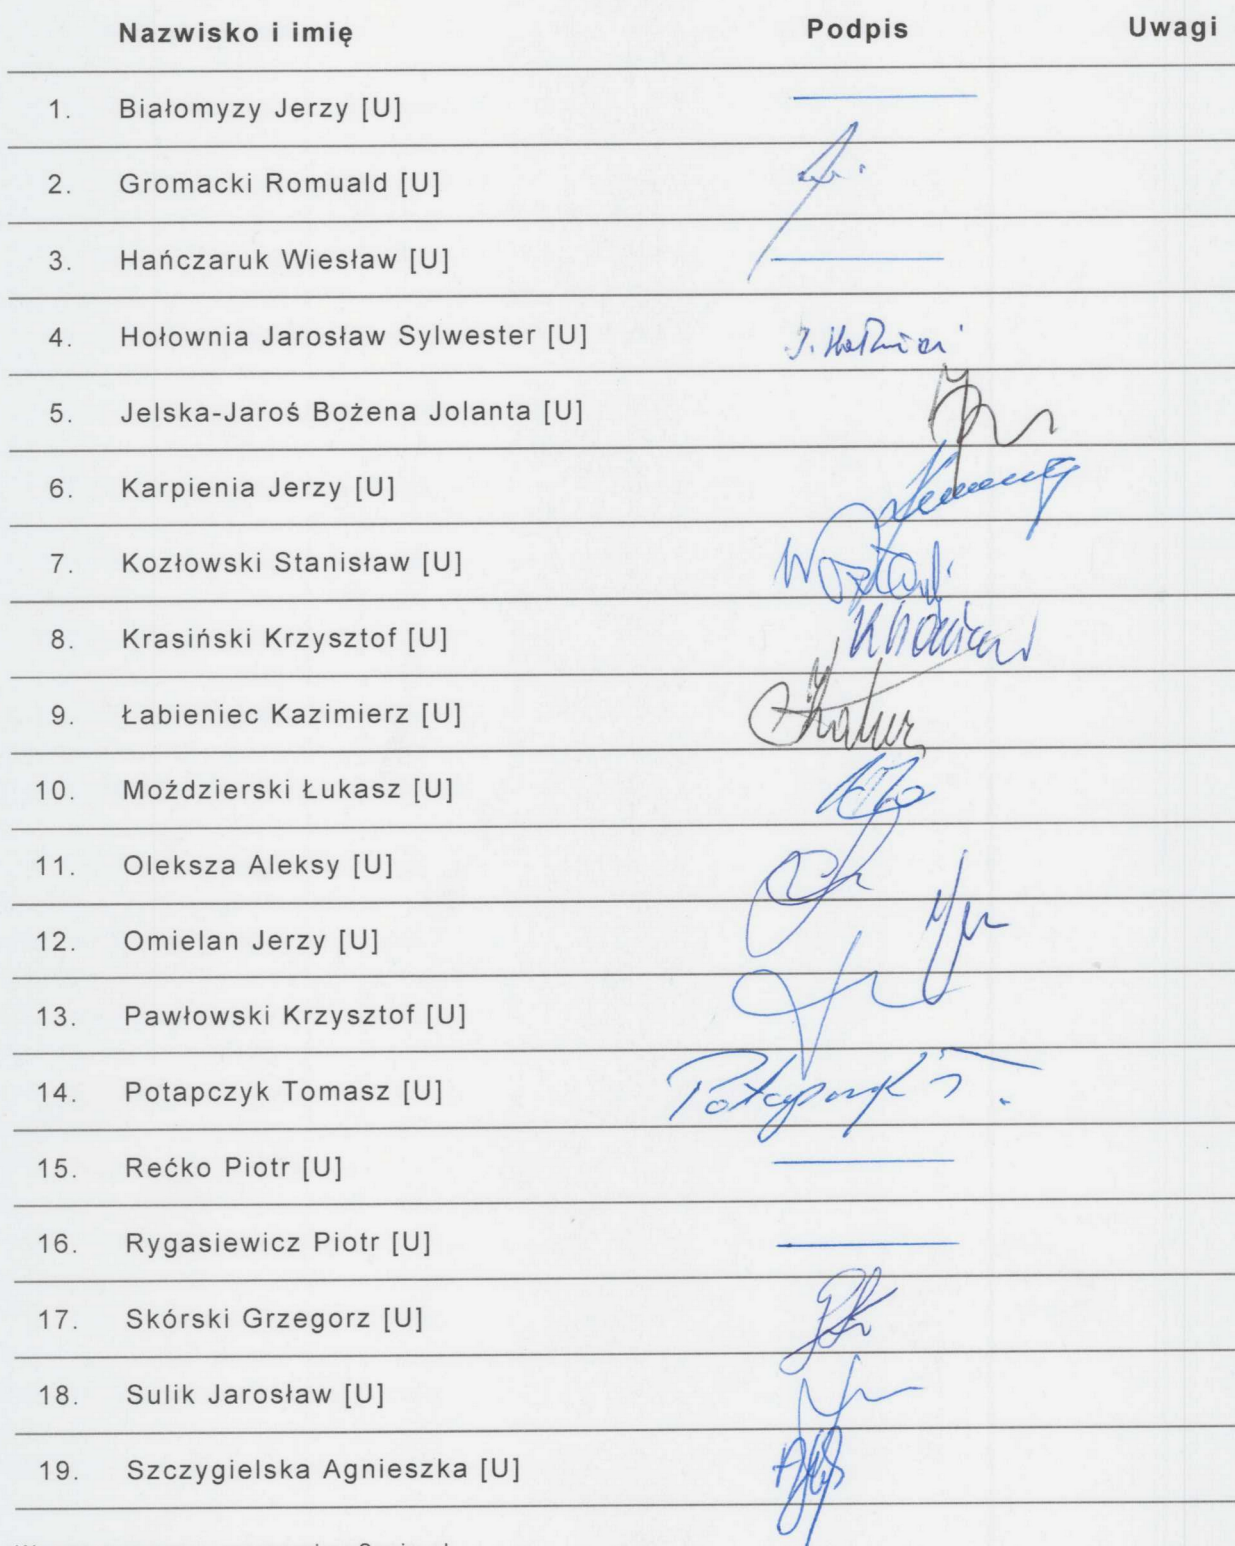 Nazwisko i imię Podpis Uwagi
1. Białomyzy Jerzy [U]
2. Gromacki Romuald [U]
3. Hańczaruk Wiesław [U]
4. Hołownia Jarosław Sylwester [U]
5. Jelska-Jaroś Bożena Jolanta [U]
6. Karpienia Jerzy [U]
7. Kozłowski Stanisław [U]
8. Krasiński Krzysztof [U]
9. Łabieniec Kazimierz [U]
10. Moździerski Łukasz [U]
11. Oleksza Aleksy [U]
12. Omielan Jerzy [U]
13. Pawłowski Krzysztof [U]
14. Potapczyk Tomasz [U] Potapczyk T.
15. Rećko Piotr [U]
16. Rygasiewicz Piotr [U]
17. Skórski Grzegorz [U]
18. Sulik Jarosław [U]
19. Szczygielska Agnieszka [U]